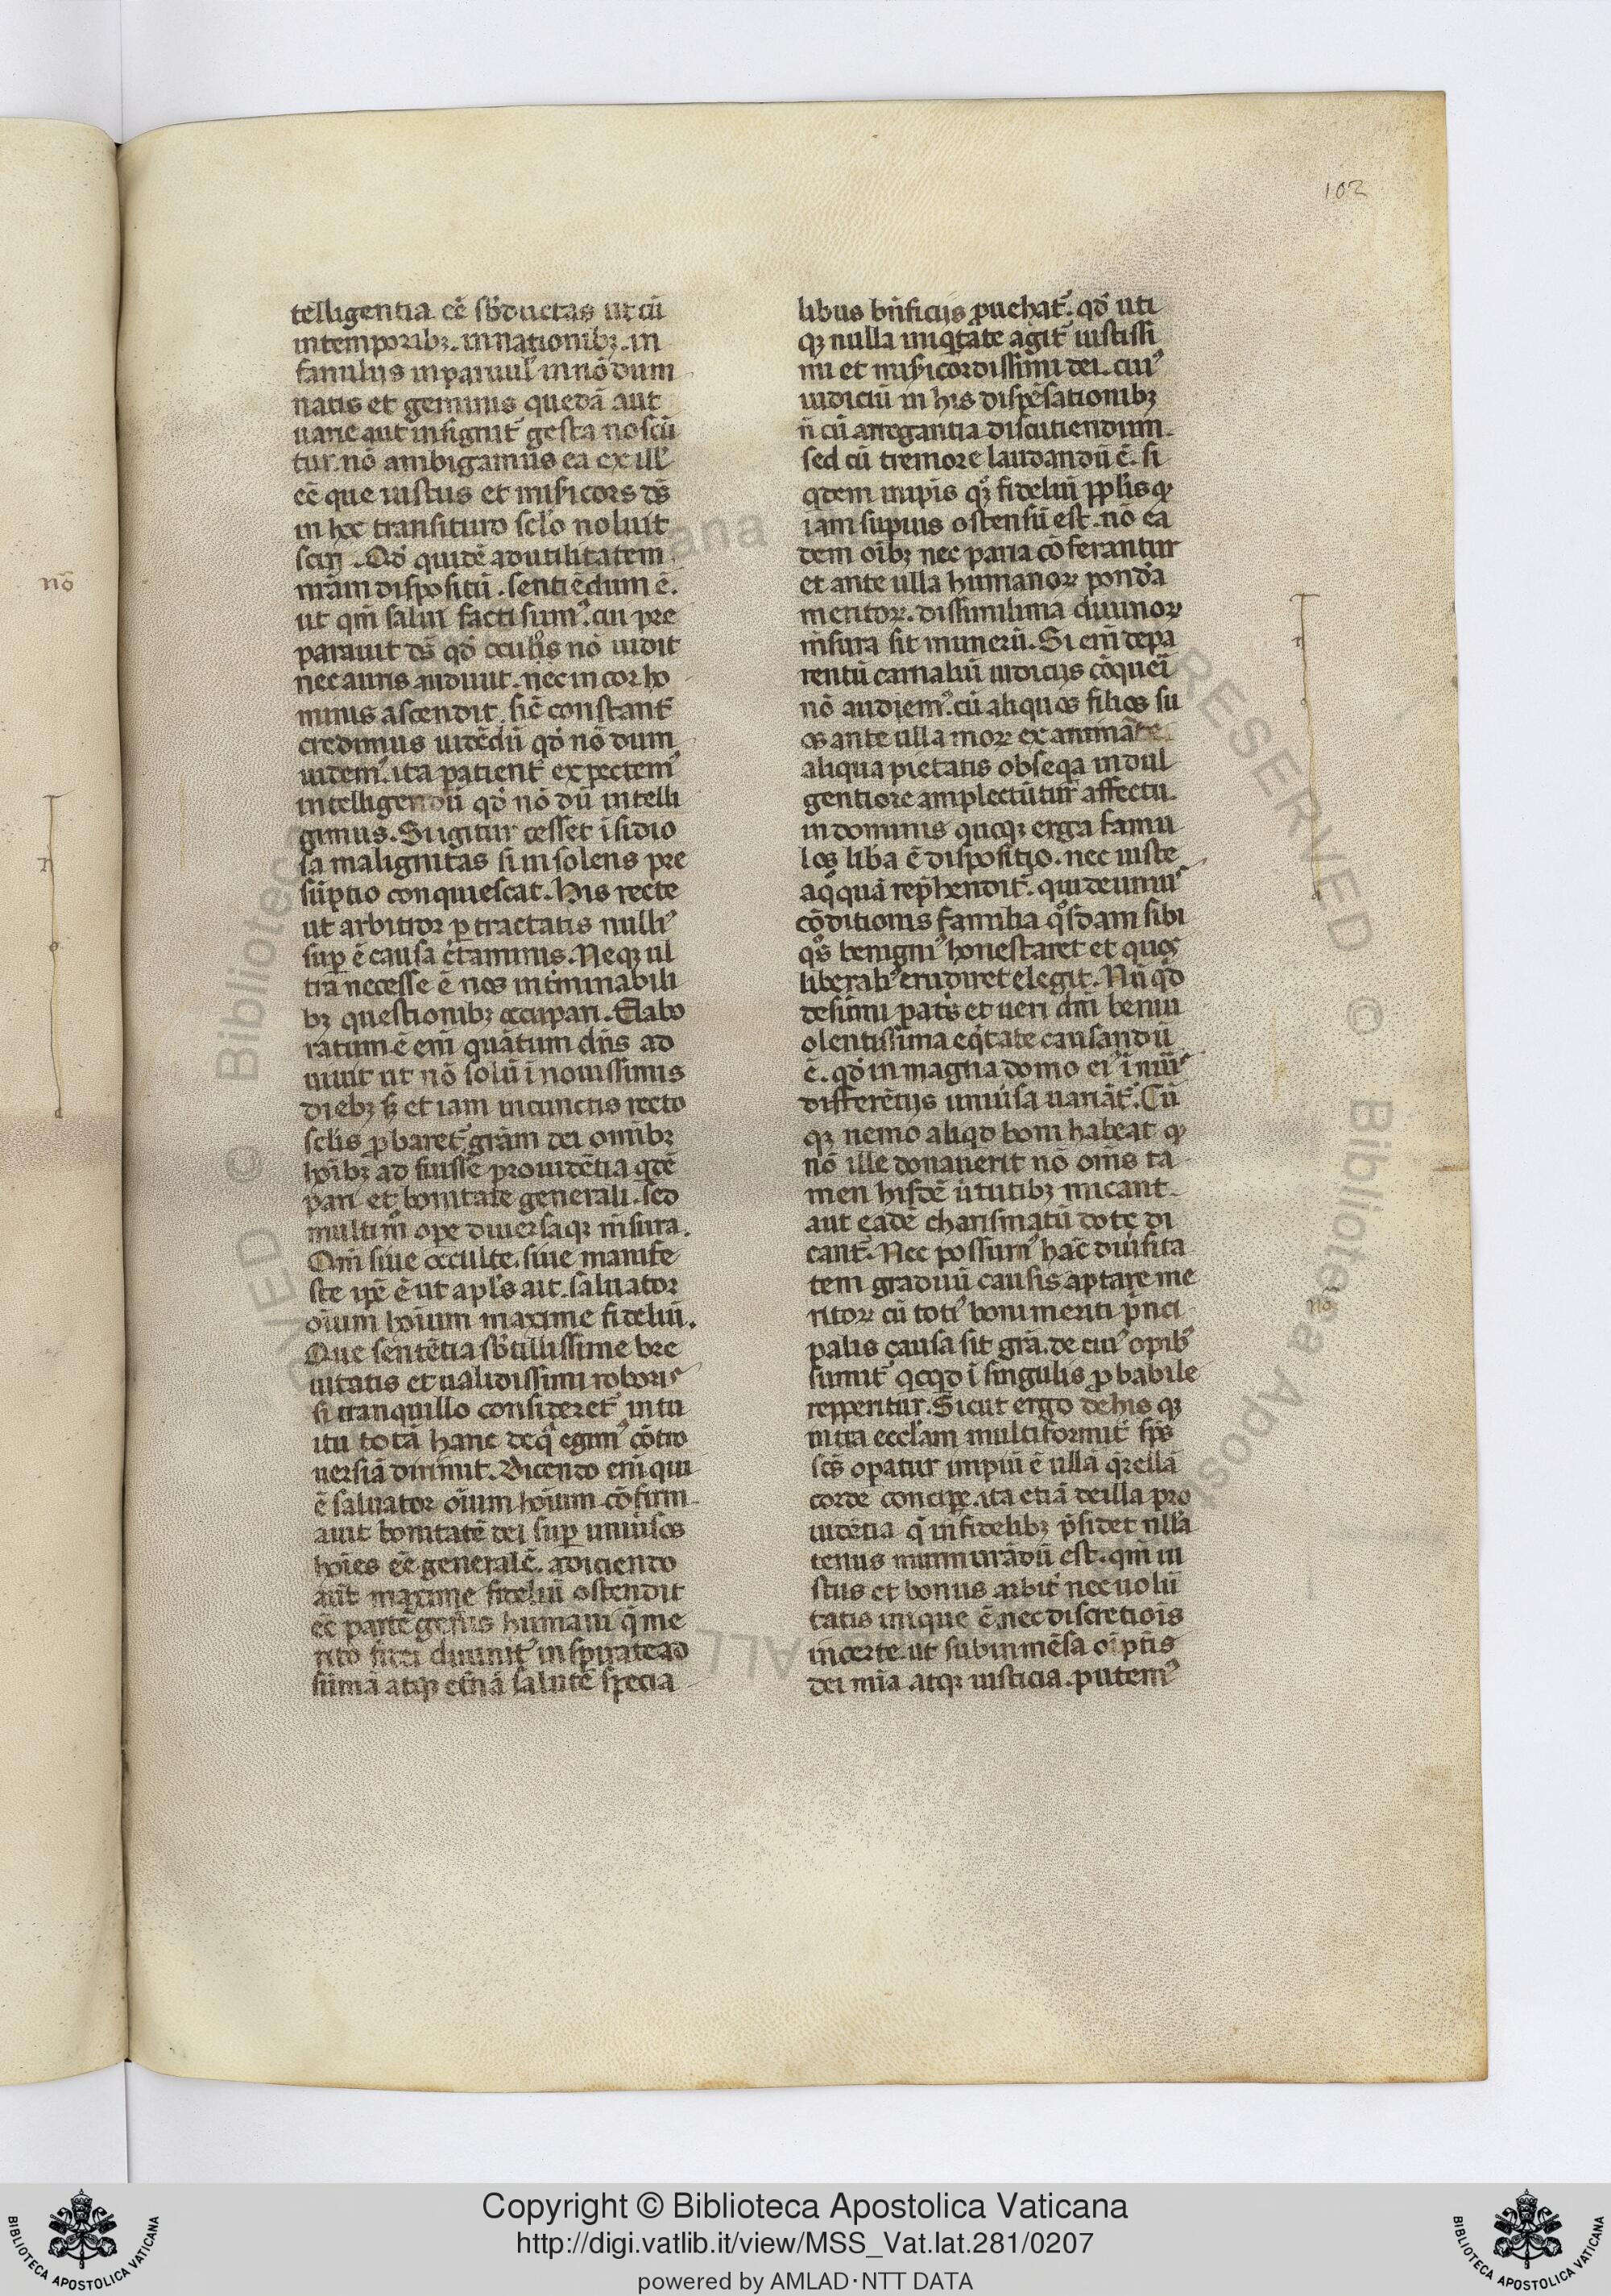 102
telligentia eē sb̄ductas ut cū
in temporibꝫ. in nationibꝫ. in
familiis in paruul' in nōdum
natis et geminis quedā aut
uarie aut insignit̄ gesta noscū
tur. nō ambigamus ea ex ill'
eē que iustus et misicors dꝰ
in hoc transituro sc̄lo noluit
sciri. Qd̄ quidē ad utilitatem
nr̄am dispositū. sentiēdum ē.
ut qm̄ salui facti sumꝰ. cū pre
parauit dꝰ qd̄ oculꝰ nō uidit
nec auris audiuit. nec in cor ho
minis ascendit. sic̄ constant̄
credimus uidēdū qd̄ nō dum
uidemꝰ. ita patient̄ expectemꝰ
intelligendū qd̄ nō dū intelli
gimus. Si igitur cesset īsidio
sa malignitas si insolens pre
sūptio conquiescat. His recte
ut arbitror ꝑtractatis nullꝰ
suꝑ ē causa c̄taminis. Neqꝫ ul
tra necesse ē nos int̄minabili
bꝫ questionibꝫ occupari. Elabo
ratum ē eni quātum dn̄s ad
iuuit ut nō solū ī nouissimis
diebꝫ sꝫ et iam in cunctis retro
sc̄lis ꝓbaret̄ gr̄am dei omībꝫ
hoībꝫ adfuisse prouidētia qdē
pari et bonitate generali. sed
multim̊ ope diuersaqꝫ m̄sura.
Qm̄ siue occulte. siue manife
ste ip̄e ē ut apl's ait. saluator
oīum hoīum maxime fidelū.
Que sentētia sb̄tillissime bre
uitatis et ualidissimi roboris
si tranquillo consideret̄ intu
itu totā hanc deq̄ egimꝰ cōtro
uersiā dirimit. Dicendo eni qui
ē saluator oīum hoīum. cōfirm
auit bonitatē dei suꝑ uniūsos
hoīes eē generalē. adiciendo
aut̄ maxime fideliū ostendit
eē partē gen̄is humani q̄ me
rito fidei diuinit̄ inspirate ad
sūmā atqꝫ et̄nā salutē specia
libus bn̄ficiis ꝓuehat̄. qd̄ uti
qꝫ nulla iniqtate agit̄ iustissi
mi et misicordissimi dei. cuiꝰ
iudiciū in his dispēsationibꝫ
n̄ cū arrogantia discutiendum.
sed cū tremore laudandū ē. si
qdem impiis quꝫ fideliū ppl'isqꝫ
iam supius ostensū est. nō ea
dem oībꝫ nec paria cōferantur
et ante ulla humanoꝝ pond'a
meritoꝝ. dissimilima diuinoꝝ
m̄sura sit munerū. Si eni de pa
rentū carnaliū iudiciis cōqueri
nō audiemꝰ. cū aliquos filios su
os ante ulla moꝝ examina te
aliqua pietatis obseqa indul
gentiore amplectūtur affectu.
in dominis quoqꝫ erga famu
los lib̄a ē dispositio. nec iuste
aq̊quā rep̄hendit̄. qui de uniꝰ
cōditionis familia q̊sdam sibi
q̊s benigniꝰ honestaret et quos
liberaliꝰ erudiret elegit. Nūqd
de sūmi pat̄s et ueri dn̄i beniu
olentissima eqtate causandū
ē. qd̄ in magna domo eiꝰ ī nūꝰ
differētiis uniūsa uariāt̄. Cū
qꝫ nemo aliqd boni habeat qꝫ
nō ille donauerit nō om̄s ta
men hisdē ūtutibꝫ micant
aut eadē charismatū dote di
cant̄. Nec possumꝰ hāc diūsita
tem graduū causis aptare me
ritoꝝ cū totiꝰ boni meriti p̄nci
palis causa sit grā. de cuiꝰ opibꝰ
sumit̄ qcqd ī singulis ꝓbabile
repperitur. Sicut ergo de his qꝫ
intra eccl'am multiformit̄ sp̄s
scs̄ opatur impiū ē ullā q̄rellā
corde conciꝑe. ita etiā de illa pro
uidētia q̄ infidelibꝫ p̄sidet null'a
tenus murmurādū est. qm̄ iu
stus et bonus arbit̄ nec uolū
tatis inique ē. nec discretiois
incerte. ut sub inmēsa oīpt̄is
dei mīa atqꝫ iusticia. putemꝰ
nō
nō
Copyright © Biblioteca Apostolica Vaticana
http://digi.vatlib.it/view/MSS_Vat.lat.281/0207
powered by AMLAD·NTT DATA
BIBLIOTECA APOSTOLICA VATICANA
BIBLIOTECA APOSTOLICA VATICANA